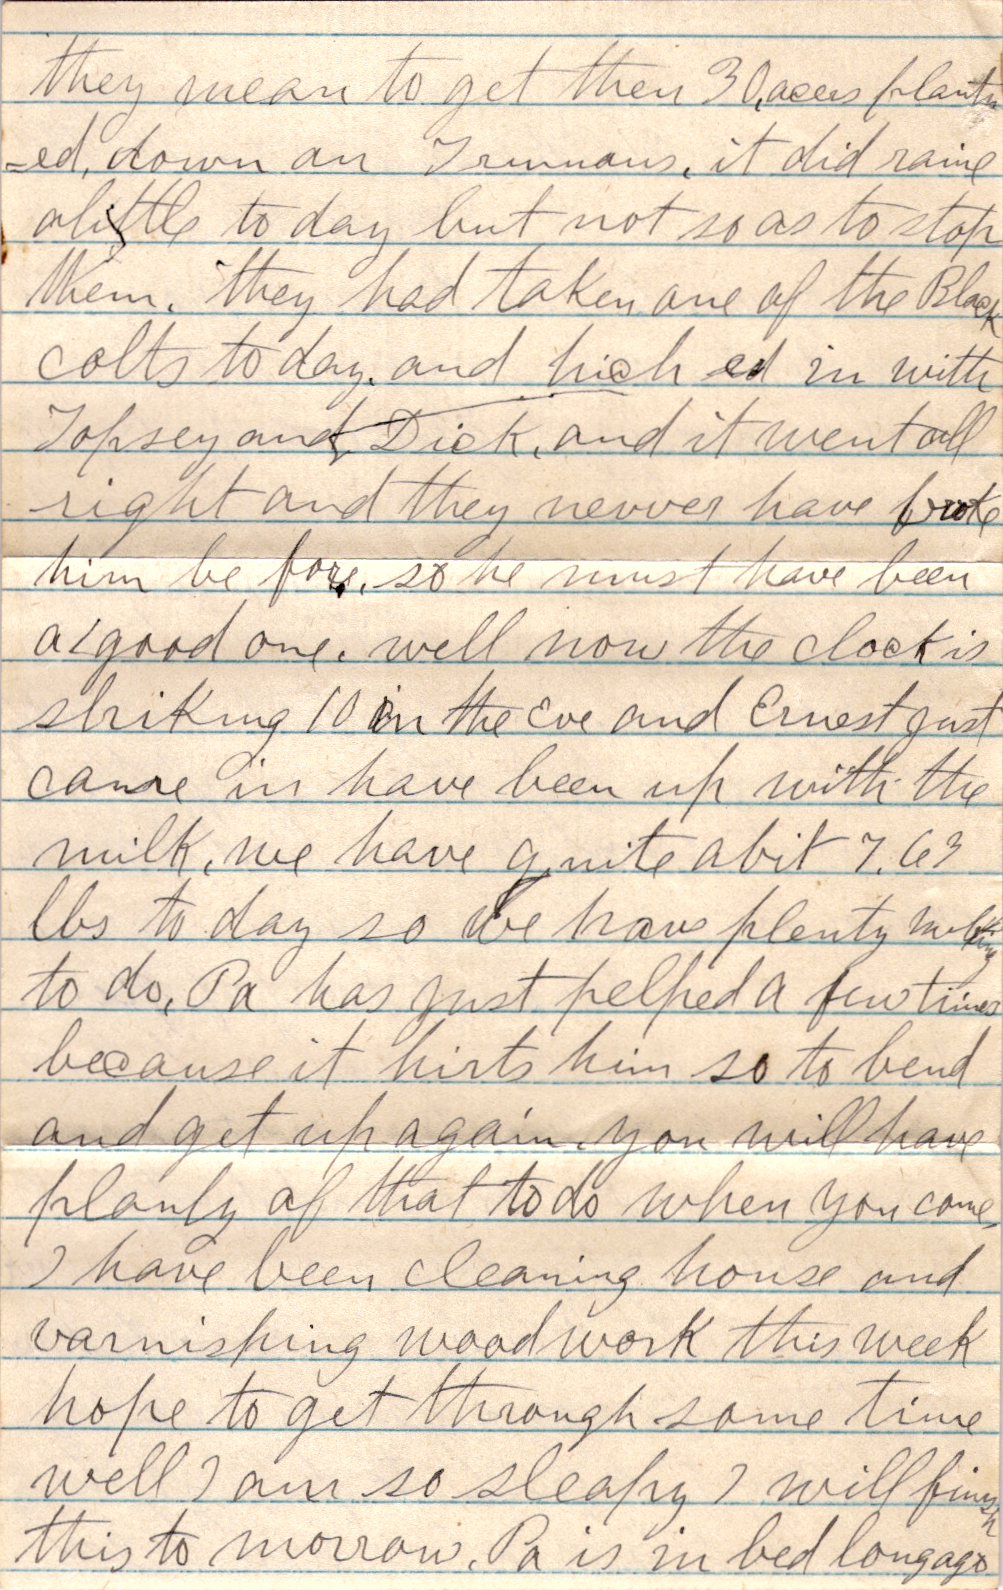 they mean to get then 30, acers plant
=ed, down on Trumans, it did raine
alittle to day but not so as to stop
them. they had taken one of the Black
colts to day. and hich ed in with
Topsey and Dick, and it went all
right and they nevver have broke
him be fore, so he must have been
a good one. well now the clock is
striking 10 in the Eve and Ernest just
came in have been up with the
milk, we have quite abit 7.63
lbs to day so We have plenty milking
to do, Pa has just helped a few times
because it hirts him so to bend
and get up again. you will have
planty of that to do when you come,
I have been cleaning house and
varnishing woodwork this week
hope to get through some time
well I am so sleapy I will finish
this to morrow. Pa is in bed longago